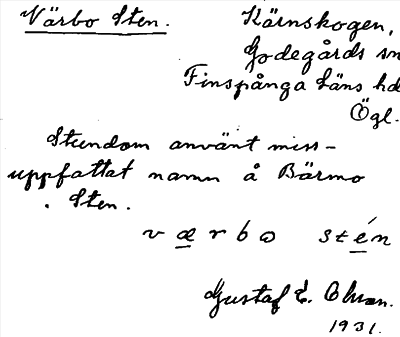 Värbo Sten.
Kärnskogen,
Godegårds sn
Finspånga Läns hd
Ögl.
Stundom använt miss-
uppfattat namn å Bärmo
Sten.
værbω stén
Gustaf E.
1931.